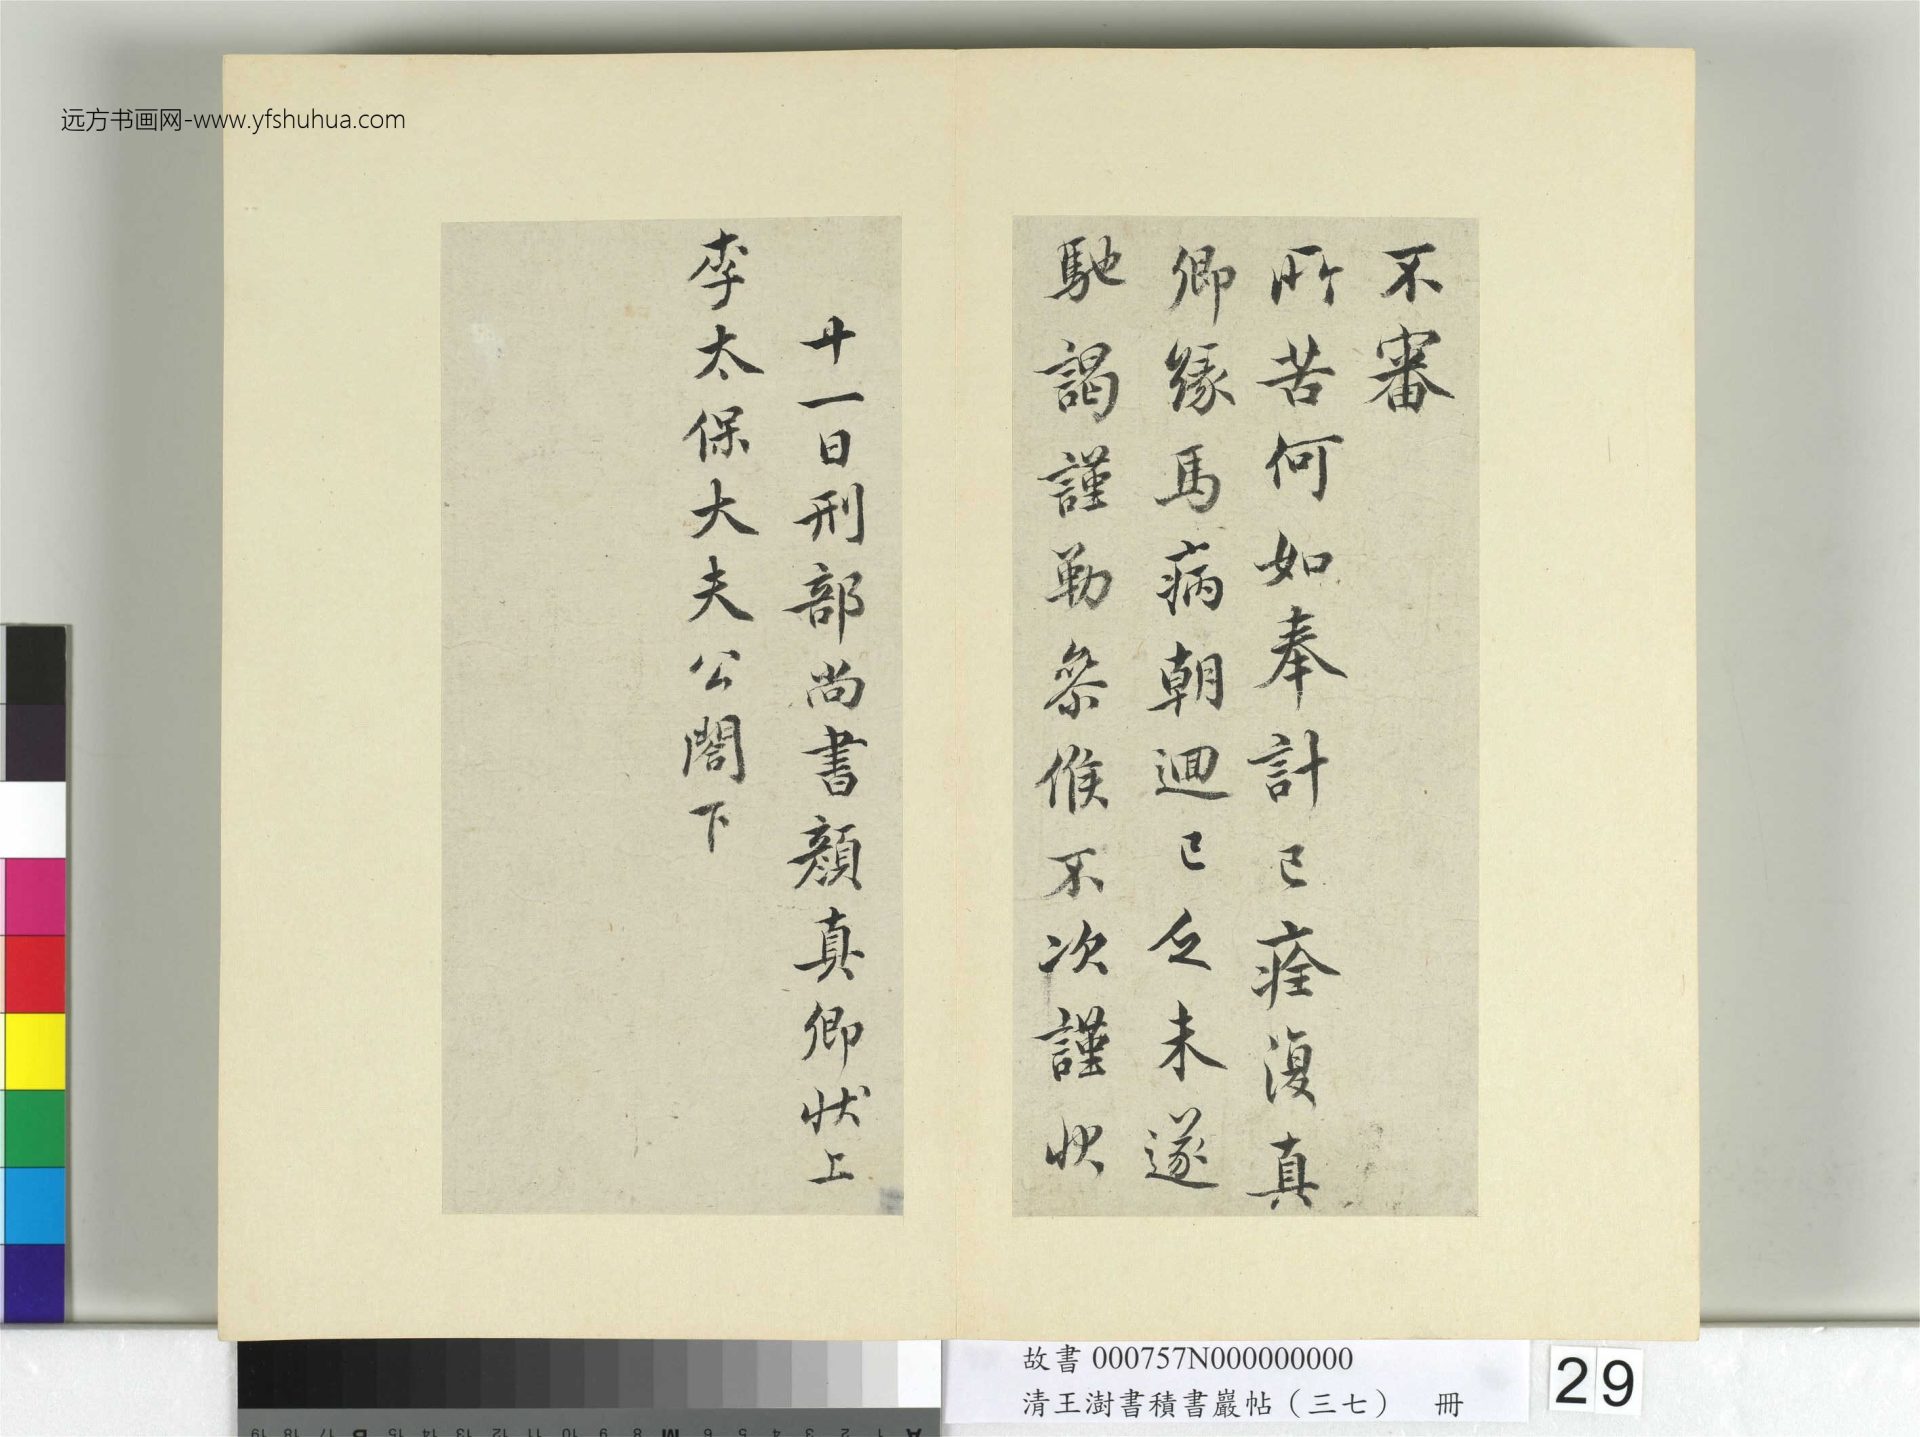 远方书画网-www.yfshuhua.com
不審
所苦何如奉計已痊復真
卿緣馬病朝迴已乏未遂
馳謁謹勒參候不次謹狀
廿一日刑部尚書顏真卿狀上
李太保大夫公閤下
故書 000757N000000000
清王澍書積書巖帖(三七) 冊
29